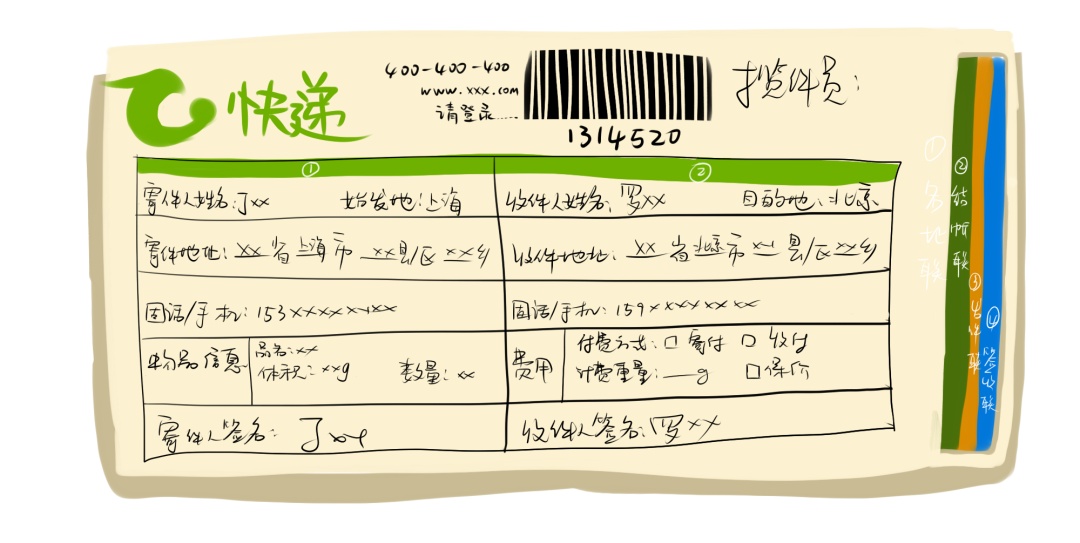 快递
400-400-400
www.xxx.com
请登录......
1314520
揽件员:
① ②
寄件人姓名:丁xx 始发地:上海 收件人姓名:罗xx 目的地:北京
寄件地址:xx省上海市 xx县/区xx乡 收件地址:xx省北京市xx县/区xx乡
固话/手机:153xxxxxxxx 固话/手机:159xxxxxxxx
物品信息 品名:xx 体积:xxg 数量:xx
费用 付费方式:□寄付 □收付
计费重量:__g □保价
寄件人签名:丁xx 收件人签名:罗xx
①各地联
②结帐联
③寄件联
④签收联